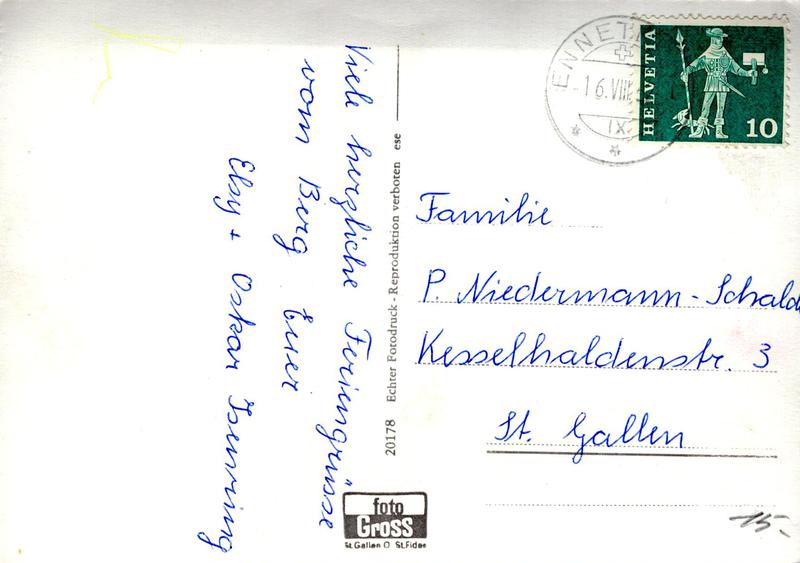 Viele herzliche Feriengrüsse
vom Berg Euer
Elsy + Oskar Isenring
20178 Echter Fotodruck - Reproduktion verboten ese
foto
Gross
St.Gallen O St.Fiden
HELVETIA
10
16.VIII
IX
Familie
P. Niedermann-Schald
Kesselhaldenstr. 3
St. Gallen
15.-